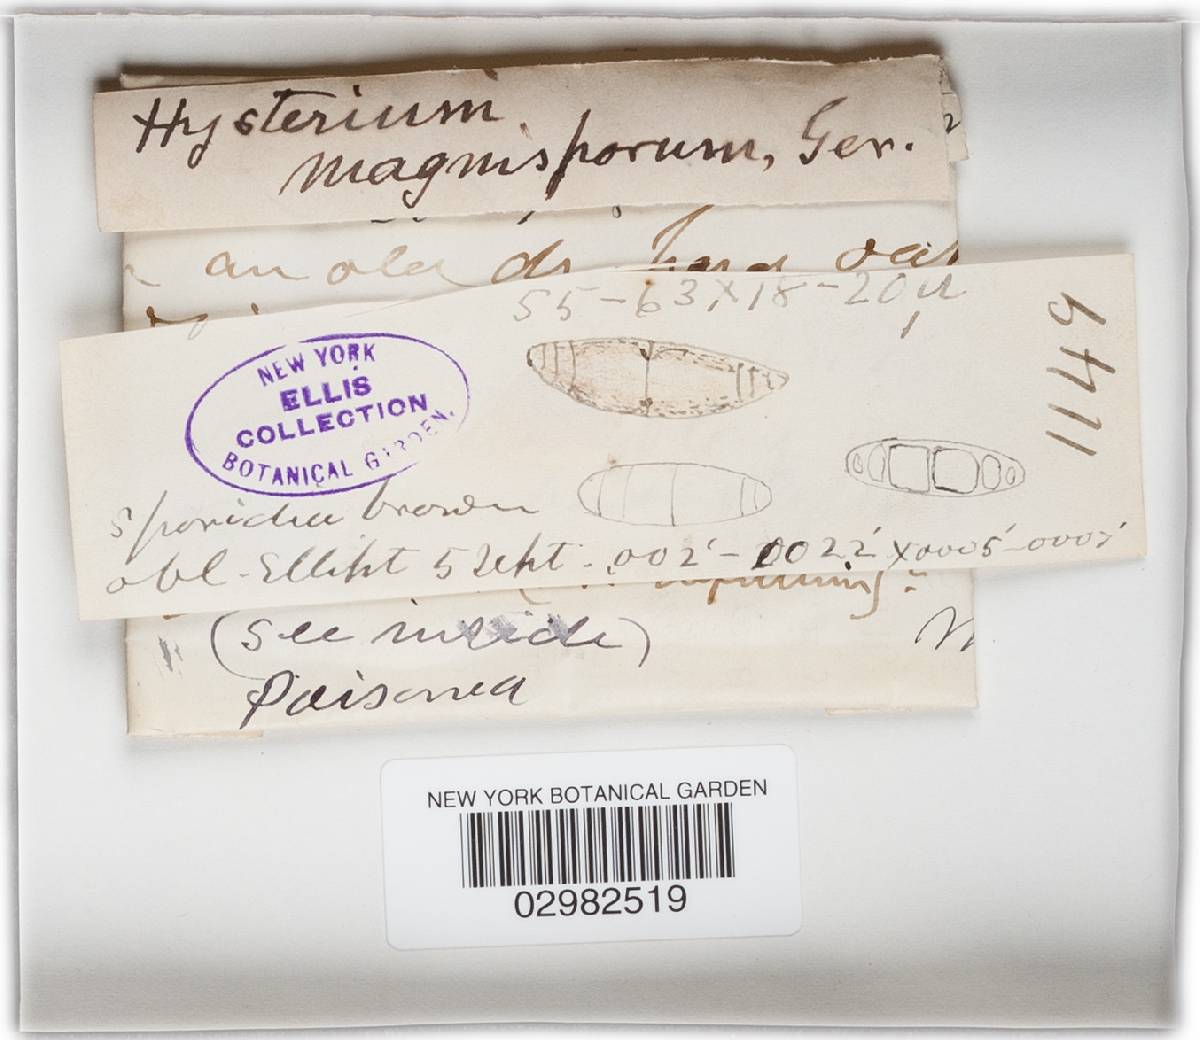 Hysterium
magnisporum, Ger.
an old dr hard
55-63×18-20µ
NEW YORK
ELLIS
COLLECTION
BOTANICAL GARDEN.
Sporidia brown
obl-Ellipt 5 Sept - .002'-0022'×0005'-0007'
(See inside)
Poisoned
NEW YORK BOTANICAL GARDEN
02982519